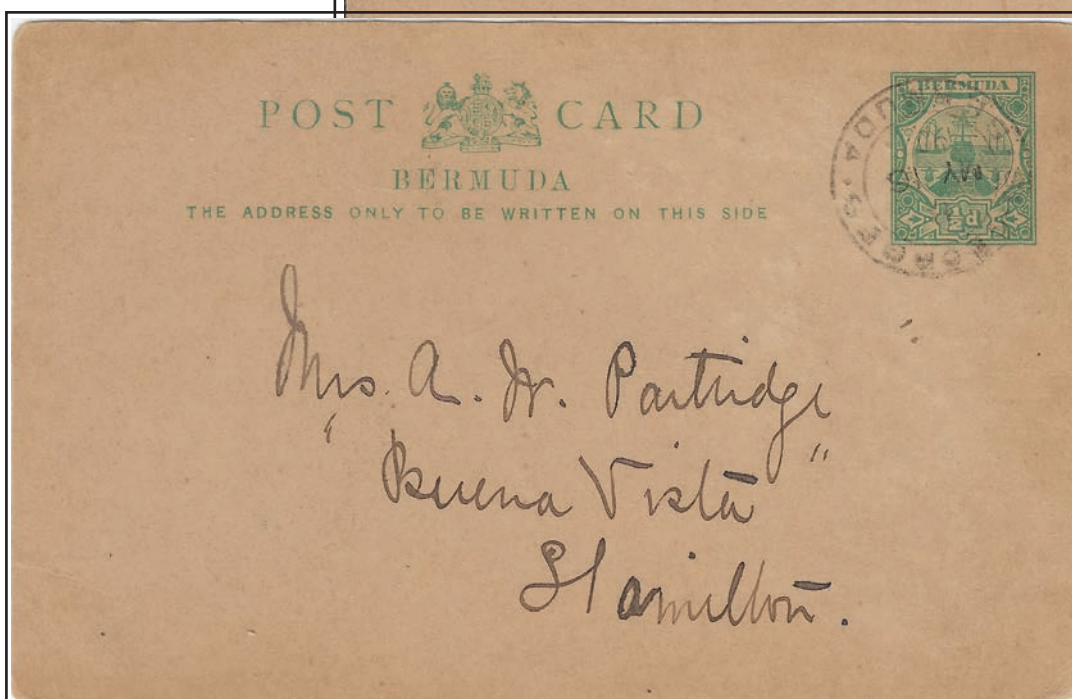 POST CARD
BERMUDA
THE ADDRESS ONLY TO BE WRITTEN ON THIS SIDE
BERMUDA
½d
MAY
Mrs. A. W. Partridge
"Buena Vista"
Hamilton.